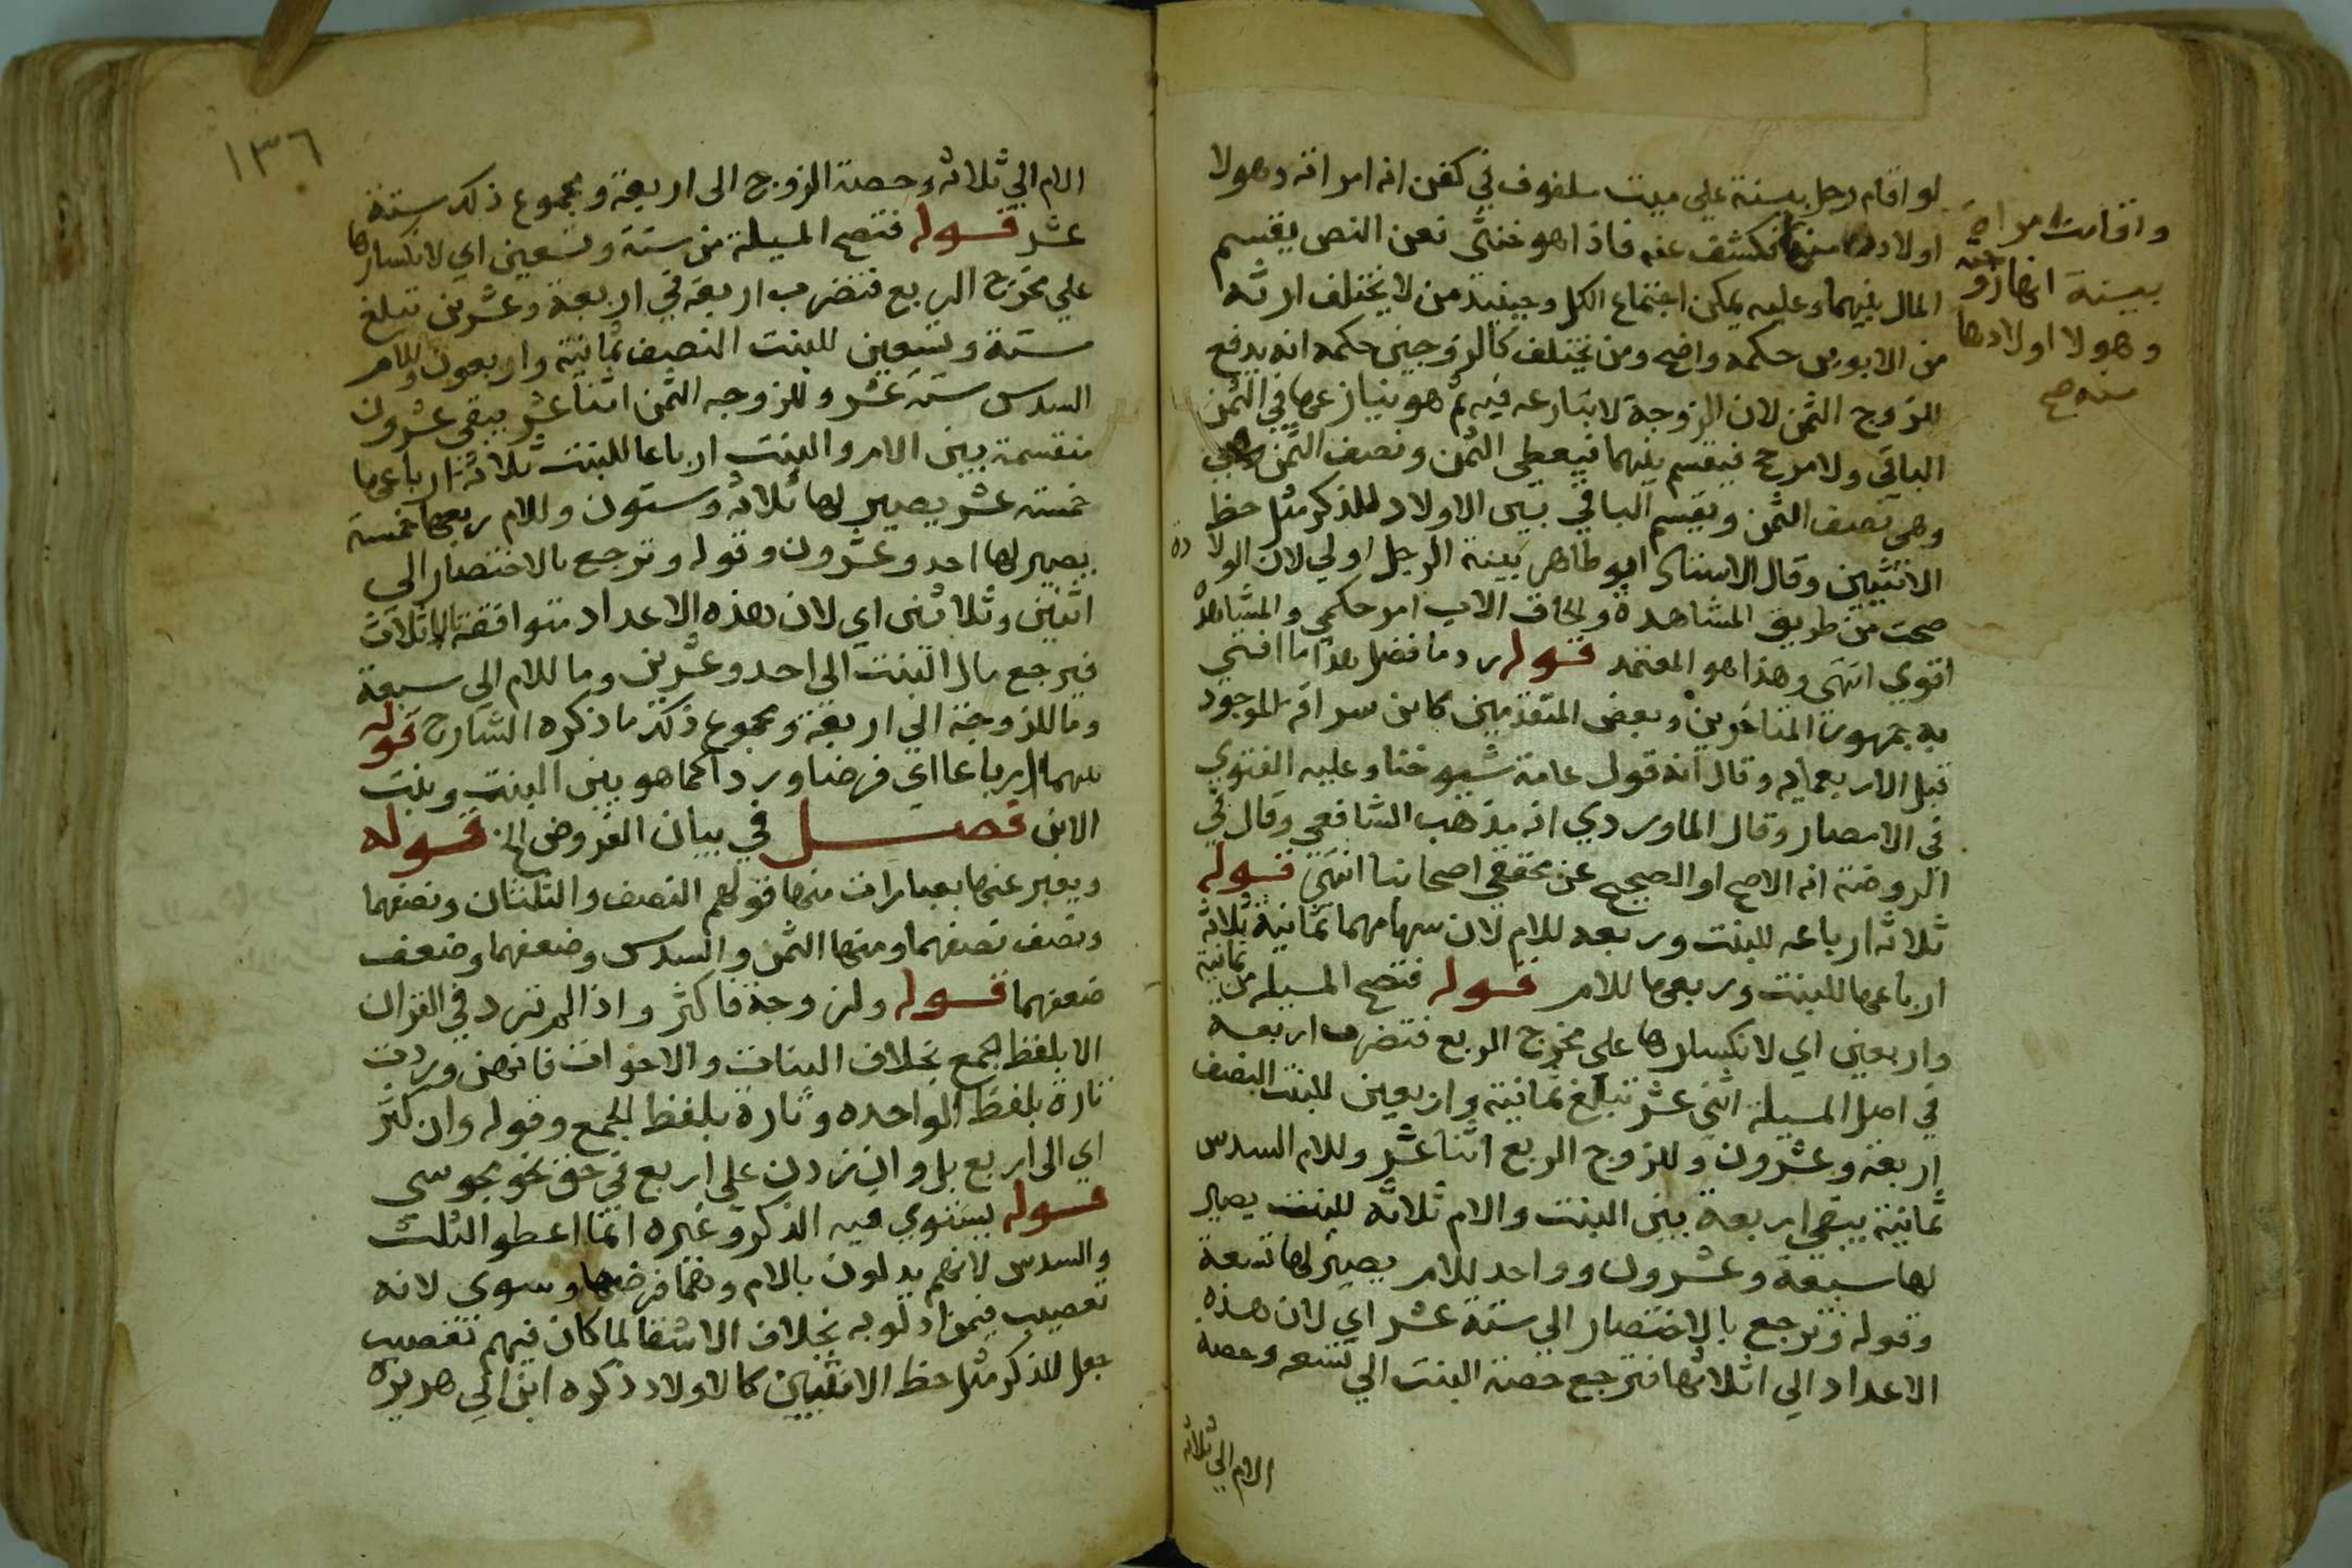 لو اقام رجل بينة على ميت ملفوف في كفن انه امراته وهولا
اولاده منها فكشف عنه فاذا هو خنثى فعن النص يقسم
المال بينهما وعليه يمكن اجتماع الكل وحينيذ من لا يختلف ارثه
من الابوين حكمه واضح ومن يختلف كالزوجين حكمه انه يدفع
للزوج الثمن لان الزوجة لا تنازعه فيه ثم هو ينازعها في الثمن
الباقي ولا مرجح فيقسم بينهما فيعطى الثمن ونصف الثمن
وهي نصف الثمن ويقسم الباقي بين الاولاد للذكر مثل حظ
الانثيين وقال الاستاذ ابو طاهر بينة الرجل اولي لان الولادة
صحت من طريق المشاهدة والحاق الاب امر حكمي والمشاهدة
اقوي انتهى وهذا هو المعتمد قوله رد ما فضل هذا ما افتى
به جمهور المتاخرين وبعض المتقدمين كابن سراقة الموجود
قبل الاربعماية وقال انه قول عامة شيوخنا وعليه الفتوي
في الامصار وقال الماوردي انه مذهب الشافعي وقال في
الروضة انه الاصح او الصحيح عن محققي اصحابنا انتهى قوله
ثلاثة ارباعه للبنت وربعه للام لان سهامهما ثمانية ثلاثة
ارباعها للبنت وربعها للام قوله فتصح المسيله من ثمانية
واربعين اي لانكسارها على مخرج الربع فتضرب اربعة
في اصل المسيلة اثني عشر تبلغ ثمانية واربعين للبنت النصف
اربعة وعشرون وللزوج الربع اثنا عشر وللام السدس
ثمانية يبقي اربعة بين البنت والام ثلاثة للبنت يصير
لها سبعة وعشرون وواحد للام يصير لها تسعة
وقوله وترجع بالاختصار الي ستة عشر اي لان هذه
الاعداد الي اثلاثها فترجع حصة البنت الي تسعه وحصة
الام الي ثلاثه
واقامت امراة
بينة انها زوجته
وهولا اولادها
منه صح
١٣٦
الام الي ثلاثه وحصة الزوج الى اربعة ومجموع ذلك ستة
عشر قوله فتصح المسيلة من ستة وتسعين اي لانكسارها
علي مخرج الربع فتضرب اربعة في اربعة وعشرين تبلغ
ستة وتسعين للبنت النصف ثمانية واربعون وللام
السدس ستة عشر وللزوجه الثمن اثنا عشر يبقى عشرون
منقسمة بين الام والبنت ارباعا للبنت ثلاثة ارباعها
خمسة عشر يصير لها ثلاثة وستون وللام ربعها خمسة
يصير لها احد وعشرون وقوله وترجع بالاختصار الى
اثنين وثلاثين اي لان هذه الاعداد متوافقة بالاثلاث
فيرجع مال البنت الى احد وعشرين وما للام الي سبعة
وما للزوجة الي اربعة ومجموع ذلك ما ذكره الشارح قوله
بينهما ارباعا اي فرضا وردا كما هو بين البنت وبنت
الابن فصل في بيان الفروض الخ قوله
ويعبر عنها بعبارات منها قولهم النصف والثلثان ونصفهما
ونصف نصفهما ومنها الثمن والسدس وضعفهما وضعف
ضعفهما قوله ولزوجة فاكثر واذا لم ترد في القران
الا بلفظ الجمع بخلاف البنات والاخوات فانهن وردت
تارة بلفظ الواحده وتارة بلفظ الجمع وقوله وان كثر
اي الى اربع بل وان زدن على اربع في حق نحو مجوسي
قوله يستوي فيه الذكر وغيره انما اعطو الثلث
والسدس لانهم يدلون بالام وهما فرضها وسوى لانه
تعصيب فيمن ادلو به بخلاف الاشقا لما كان فيهم تعصيب
جعل للذكر مثل حظ الانثيين كالاولاد ذكره ابن ابي هريرة